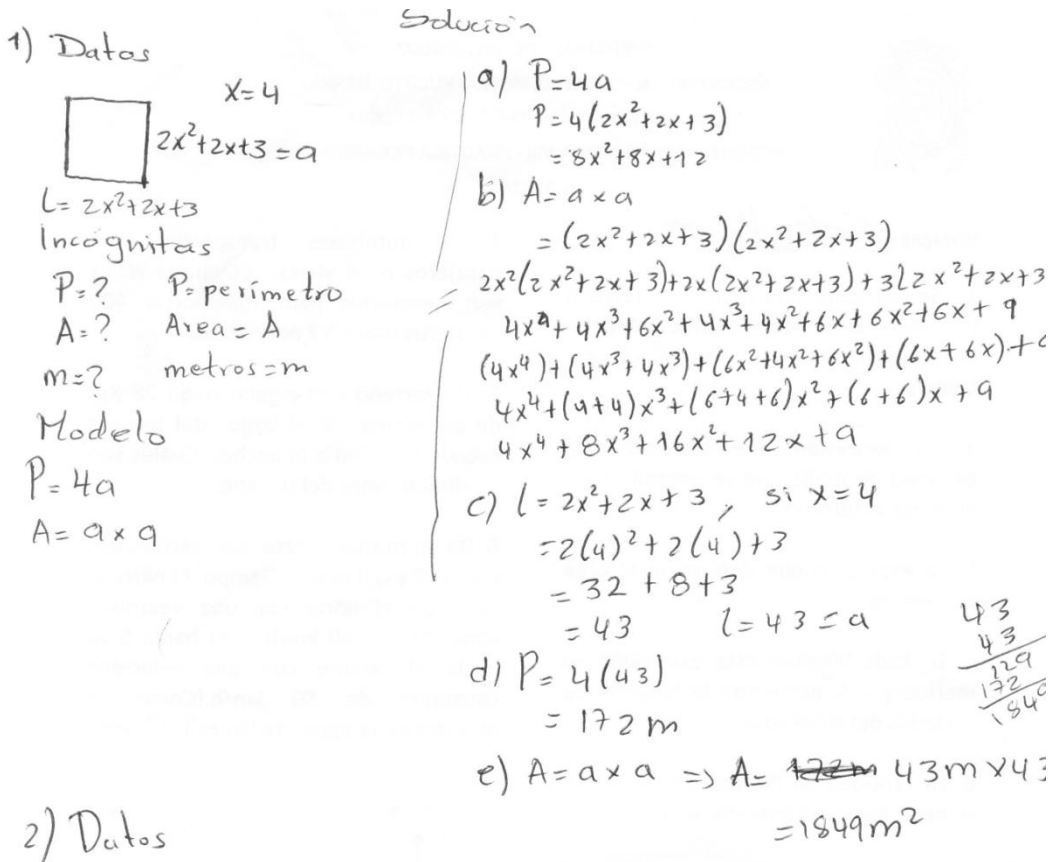 Solución
1) Datos
x=4
2x²+2x+3=a
L= 2x²+2x+3
Incógnitas
P=? P=perímetro
A=? Area=A
m=? metros=m
Modelo
P=4a
A=a×a
a) P=4a
P=4(2x²+2x+3)
=8x²+8x+12
b) A=a×a
=(2x²+2x+3)(2x²+2x+3)
2x²(2x²+2x+3)+2x(2x²+2x+3)+3(2x²+2x+3
4x⁴+4x³+6x²+4x³+4x²+6x+6x²+6x+9
(4x⁴)+(4x³+4x³)+(6x²+4x²+6x²)+(6x+6x)+9
4x⁴+(4+4)x³+(6+4+6)x²+(6+6)x+9
4x⁴+8x³+16x²+12x+9
c) l=2x²+2x+3, si x=4
=2(4)²+2(4)+3
=32+8+3
=43 l=43=a
43
43
129
172
1849
d) P=4(43)
=172m
e) A=a×a => A= 172m 43m×43
=1849m²
2) Datos